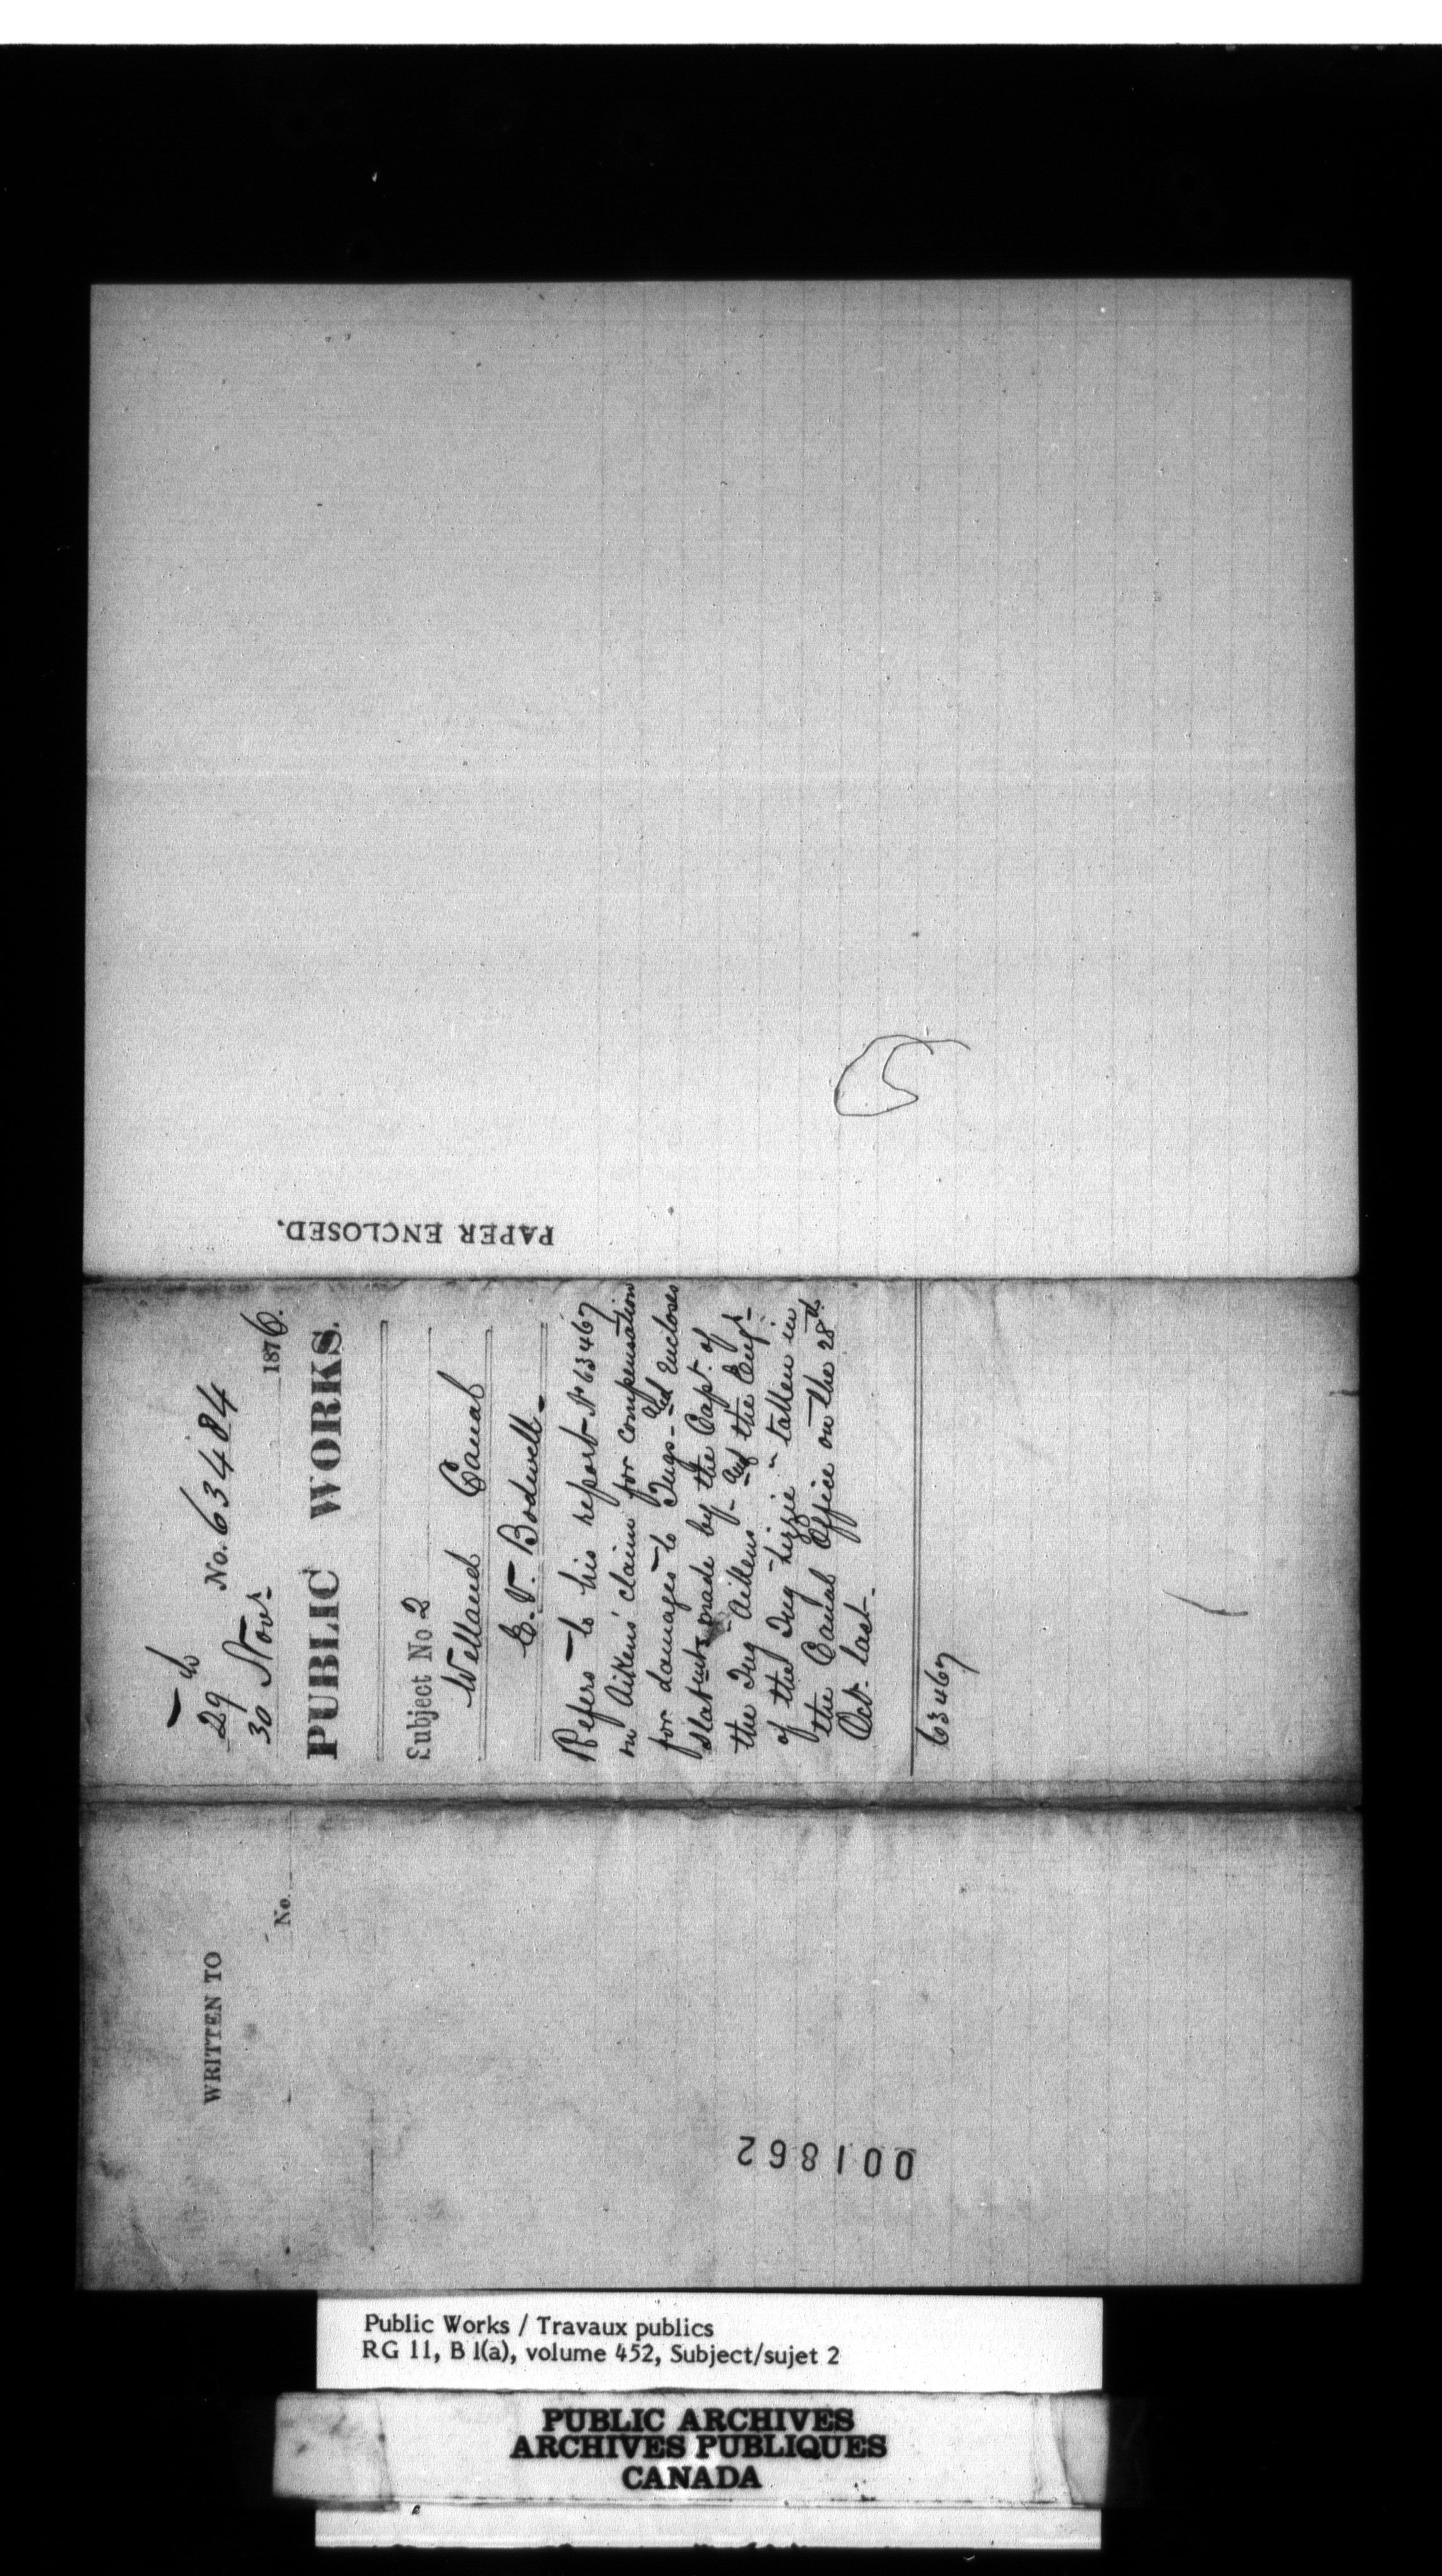 PAPER ENCLOSED.
No. 63484
29
30 Novr. 1876.
PUBLIC WORKS.
Subject No 2
Welland Canal
E. V. Bodwell.
Refers to his report No 63467
on Aikens' claim for compensation
for damages to Tugs and Encloses
Statements made by the Capt. of
the Tug Aikens and the Engr.
of the Tug "Lizzie" taken in
the Canal Office on the 28th.
Oct. last.
63467
WRITTEN TO
No.
001862
Public Works / Travaux publics
RG 11, B 1(a), volume 452, Subject/sujet 2
PUBLIC ARCHIVES
ARCHIVES PUBLIQUES
CANADA